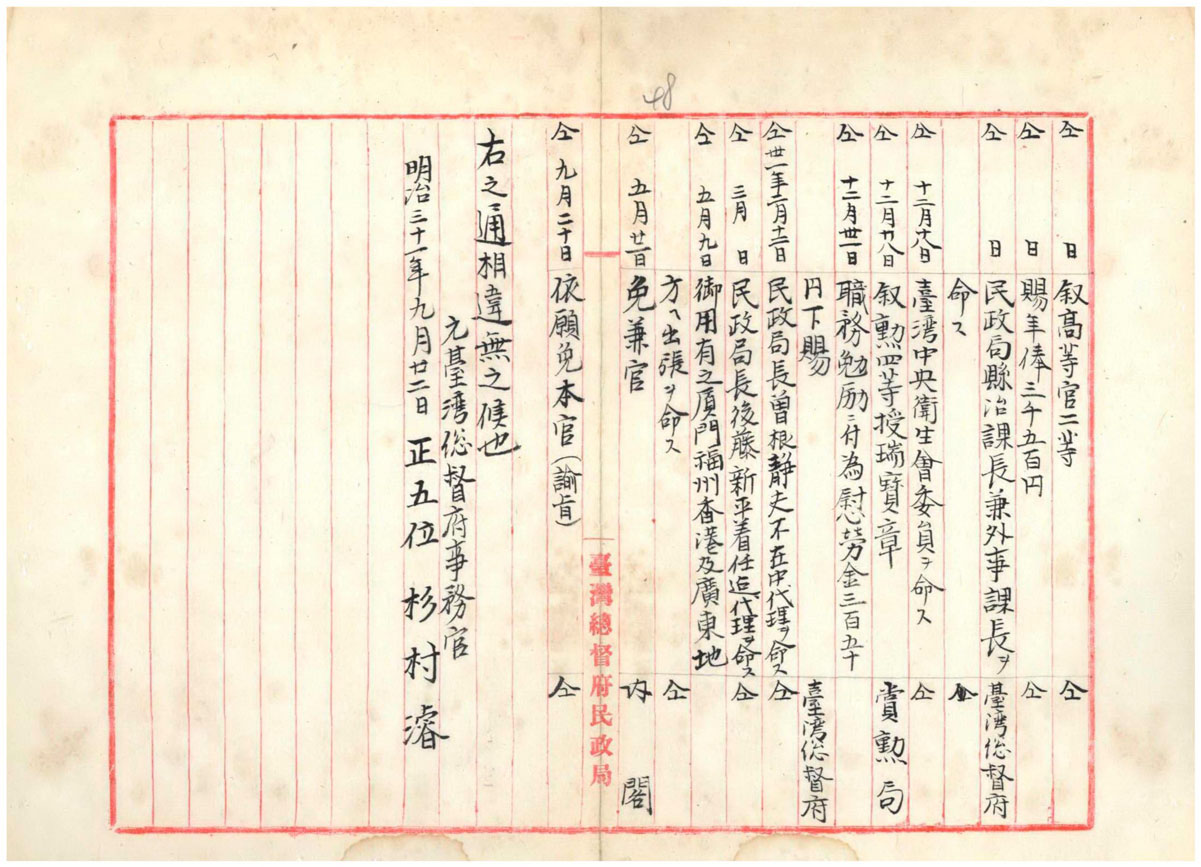 48
仝　日　叙高等官二等　仝
仝　日　賜年俸三千五百円　仝
仝　日　民政局縣治課長兼外事課長ヲ　臺湾総督府
命ス　仝
仝　十二月　日　臺湾中央衛生會委員ヲ命ス　仝
仝　十二月廿八日　叙勲四等授瑞寶章　賞勲局
仝　十二月卅一日　職務勉励ニ付為慰勞金三百五十
円下賜　臺湾総督府
仝卅一年二月十二日　民政局長曽根静夫不在中代理ヲ命ス　仝
三月　日　民政局長後藤新平着任迄代理ヲ命ス　仝
仝　五月九日　御用有之厦門福州香港及廣東地
方ヘ出張ヲ命ス　仝
仝　五月　日　免兼官　内閣
臺灣總督府民政局
仝　九月二十日　依願免本官（諭旨）　仝
右之通相違無之候也
元臺湾総督府事務官
明治三十一年九月廿二日　正五位　杉村濬